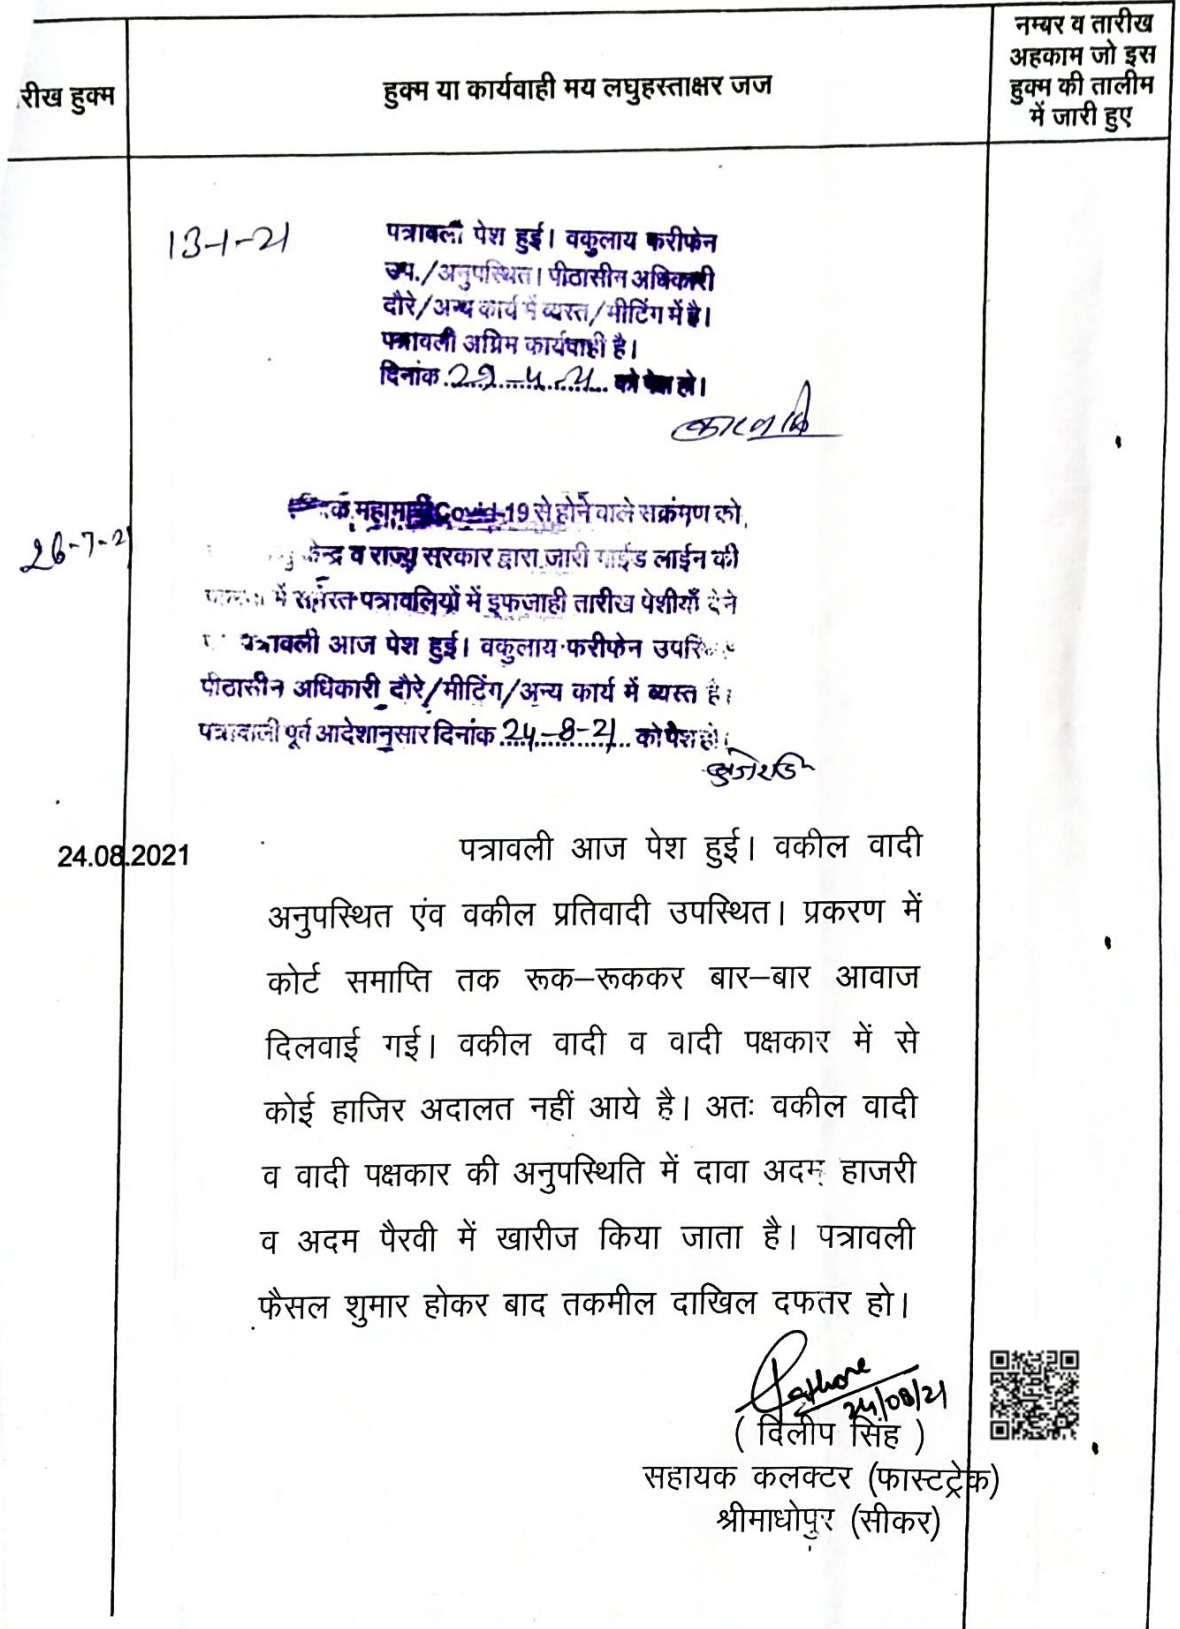 रीख हुक्म
हुक्म या कार्यवाही मय लघुहस्ताक्षर जज
नम्बर व तारीख
अहकाम जो इस
हुक्म की तालीम
में जारी हुए
13-1-21
पत्रावली पेश हुई। वकुलाय फरीफेन
उप./अनुपस्थित। पीठासीन अधिकारी
दौरे/अन्य कार्य में व्यस्त/मीटिंग में है।
पत्रावली अग्रिम कार्यवाही है।
दिनांक 29-4-21 को पेश हो।
26-7-2
क महामारी Covid-19 से होने वाले सक्रंमण को
केन्द्र व राज्य सरकार द्वारा जारी गाईड लाईन की
में समस्त पत्रावलियों में इफजाही तारीख पेशीयाँ देने
पत्रावली आज पेश हुई। वकुलाय फरीफेन
पीठासीन अधिकारी दौरे/मीटिंग/अन्य कार्य में व्यस्त है।
पत्रावाली पूर्व आदेशानुसार दिनांक 24-8-21 को पेश हो।
24.08.2021
पत्रावली आज पेश हुई। वकील वादी
अनुपस्थित एंव वकील प्रतिवादी उपस्थित। प्रकरण में
कोर्ट समाप्ति तक रूक–रूककर बार–बार आवाज
दिलवाई गई। वकील वादी व वादी पक्षकार में से
कोई हाजिर अदालत नहीं आये है। अतः वकील वादी
व वादी पक्षकार की अनुपस्थिति में दावा अदम हाजरी
व अदम पैरवी में खारीज किया जाता है। पत्रावली
फैसल शुमार होकर बाद तकमील दाखिल दफतर हो।
24/08/21
( दिलीप सिंह )
सहायक कलक्टर (फास्टट्रेक)
श्रीमाधोपुर (सीकर)